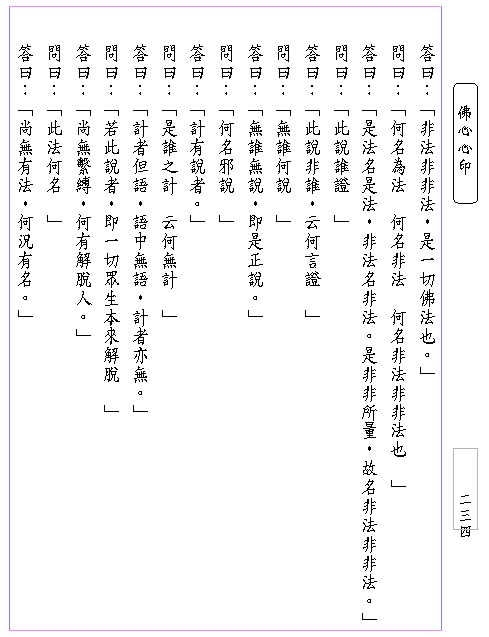 佛心心印
答曰：「非法非非法，是一切佛法也。」
問曰：「何名為法　何名非法　何名非法非非法也　」
答曰：「是法名是法，非法名非法。是非非所量，故名非法非非法。」
問曰：「此說誰證　」
答曰：「此說非誰，云何言證　」
問曰：「無誰何說　」
答曰：「無誰無說，即是正說。」
問曰：「何名邪說　」
答曰：「計有說者。」
問曰：「是誰之計　云何無計　」
答曰：「計者但語，語中無語，計者亦無。」
問曰：「若此說者，即一切眾生本來解脫　」
答曰：「尚無繫縛，何有解脫人。」
問曰：「此法何名　」
答曰：「尚無有法，何況有名。」
二三四